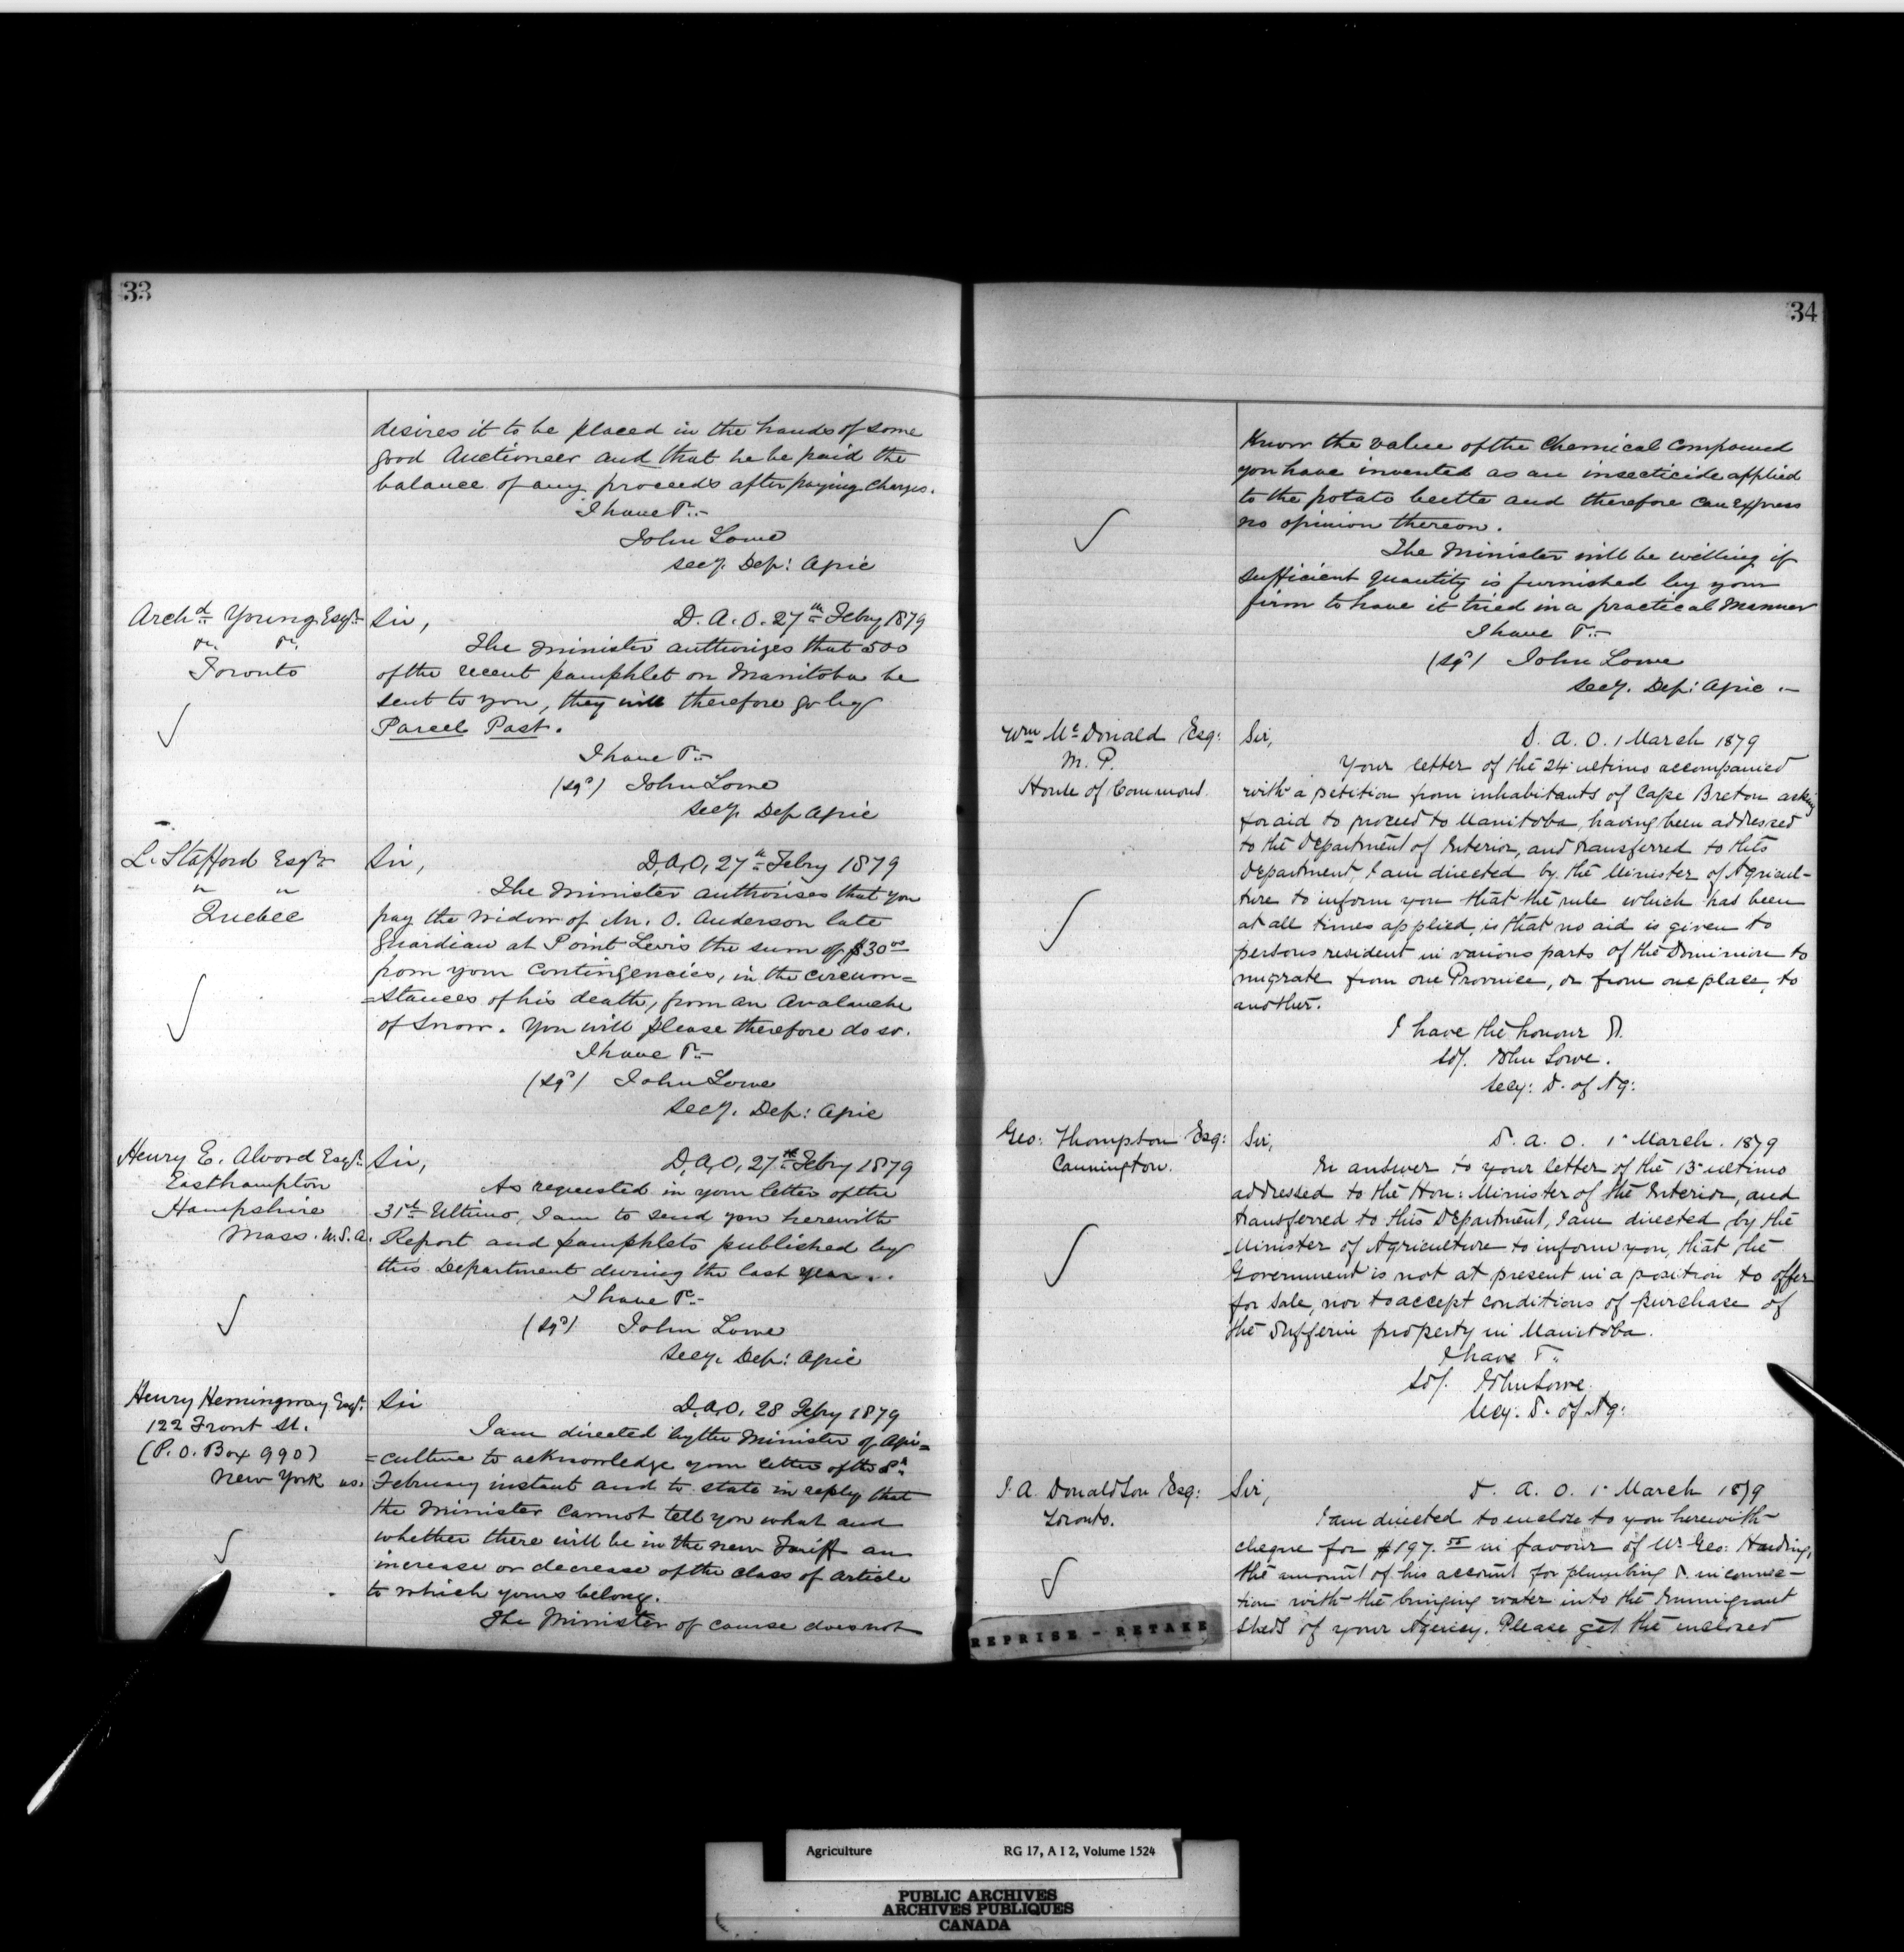 33
desires it to be placed in the hands of some
good Auctioneer and that he be paid the
balance of any proceeds after paying charges.
I have &c.
John Lowe
Secy. Dep: Agric
Archd. Young Esqr.
Toronto
Sir, D. A. O. 27th Febry 1879
The Minister authorizes that 500
of the recent pamphlet on Manitoba be
sent to you, they will therefore go by
Parcel Post.
I have &c.
(sgd) John Lowe
Secy. Dep Agric
L. Stafford Esqr.
" "
Quebec
Sir, D. A. O. 27th Febry 1879
The Minister authorises that you
pay the widow of Mr. O. Anderson late
Guardian at Point Levis the sum of $30 00
from your Contingencies, in the circum=
=stances of his death, from an Avalanche
of Snow. You will please therefore do so.
I have &c.
(sgd) John Lowe
Secy. Dep: Agric
Henry E. Alvord Esqr.
Easthampton
Hampshire
Mass. U.S.A.
Sir, D. A. O. 27th Febry 1879
As requested in your letter of the
31st Ultimo, I am to send you herewith
Report and pamphlets published by
this Department during the last year.
I have &c.
(sgd) John Lowe
Secy. Dep: Agric
Henry Hemingway Esqr.
122 Front St.
(P. O. Box 990)
New York us.
Sir D. A. O. 28 Febry 1879
I am directed by the Minister of Agri=
=culture to acknowledge your letter of the 8th
February instant and to state in reply that
the Minister cannot tell you what and
whether there will be in the new Tariff an
increase or decrease of the class of article
to which yours belong.
The Minister of course does not
34
Know the value of the Chemical Compound
you have invented as an insecticide applied
to the potato beetle and therefore can express
no opinion thereon.
The Minister will be willing if
sufficient quantity is furnished by your
firm to have it tried in a practical Manner
I have &c.
(sgd) John Lowe
Secy. Dep: Agric.
Wm McDonald Esq:
M. P.
House of Commons.
Sir, D. A. O. 1 March 1879
Your letter of the 24 ultimo accompanied
with a petition from inhabitants of Cape Breton asking
for aid to proceed to Manitoba, having been addressed
to the Department of Interior, and transferred to this
Department, I am directed by the Minister of Agricul-
ture to inform you that the rule which has been
at all times applied, is that no aid is given to
persons resident in various parts of the Dominion to
migrate from one Province, or from one place, to
another.
I have the honour &.
Sd/. John Lowe.
Secy: D. of Ag:
Geo: Thompson Esq:
Cannington.
Sir, D. A. O. 1 March. 1879
In answer to your letter of the 13 ultimo
addressed to the Hon: Minister of the Interior, and
transferred to this Department, I am directed by the
Minister of Agriculture to inform you, that the
Government is not at present in a position to offer
for sale, nor to accept conditions of purchase of
the Dufferin property in Manitoba.
I have &c.
Sd/. John Lowe.
Secy. D. of Ag:
J. A. Donaldson Esq:
Toronto.
Sir, D. A. O. 1 March 1879
I am directed to enclose to you herewith
cheque for $197. 55 in favour of Mr Geo: Harding,
the amount of his account for plumbing &. in connec-
tion with the bringing water into the Immigrant
Sheds of your Agency. Please get the enclosed
REPRISE - RETAKE
Agriculture RG 17, A I 2, Volume 1524
PUBLIC ARCHIVES
ARCHIVES PUBLIQUES
CANADA